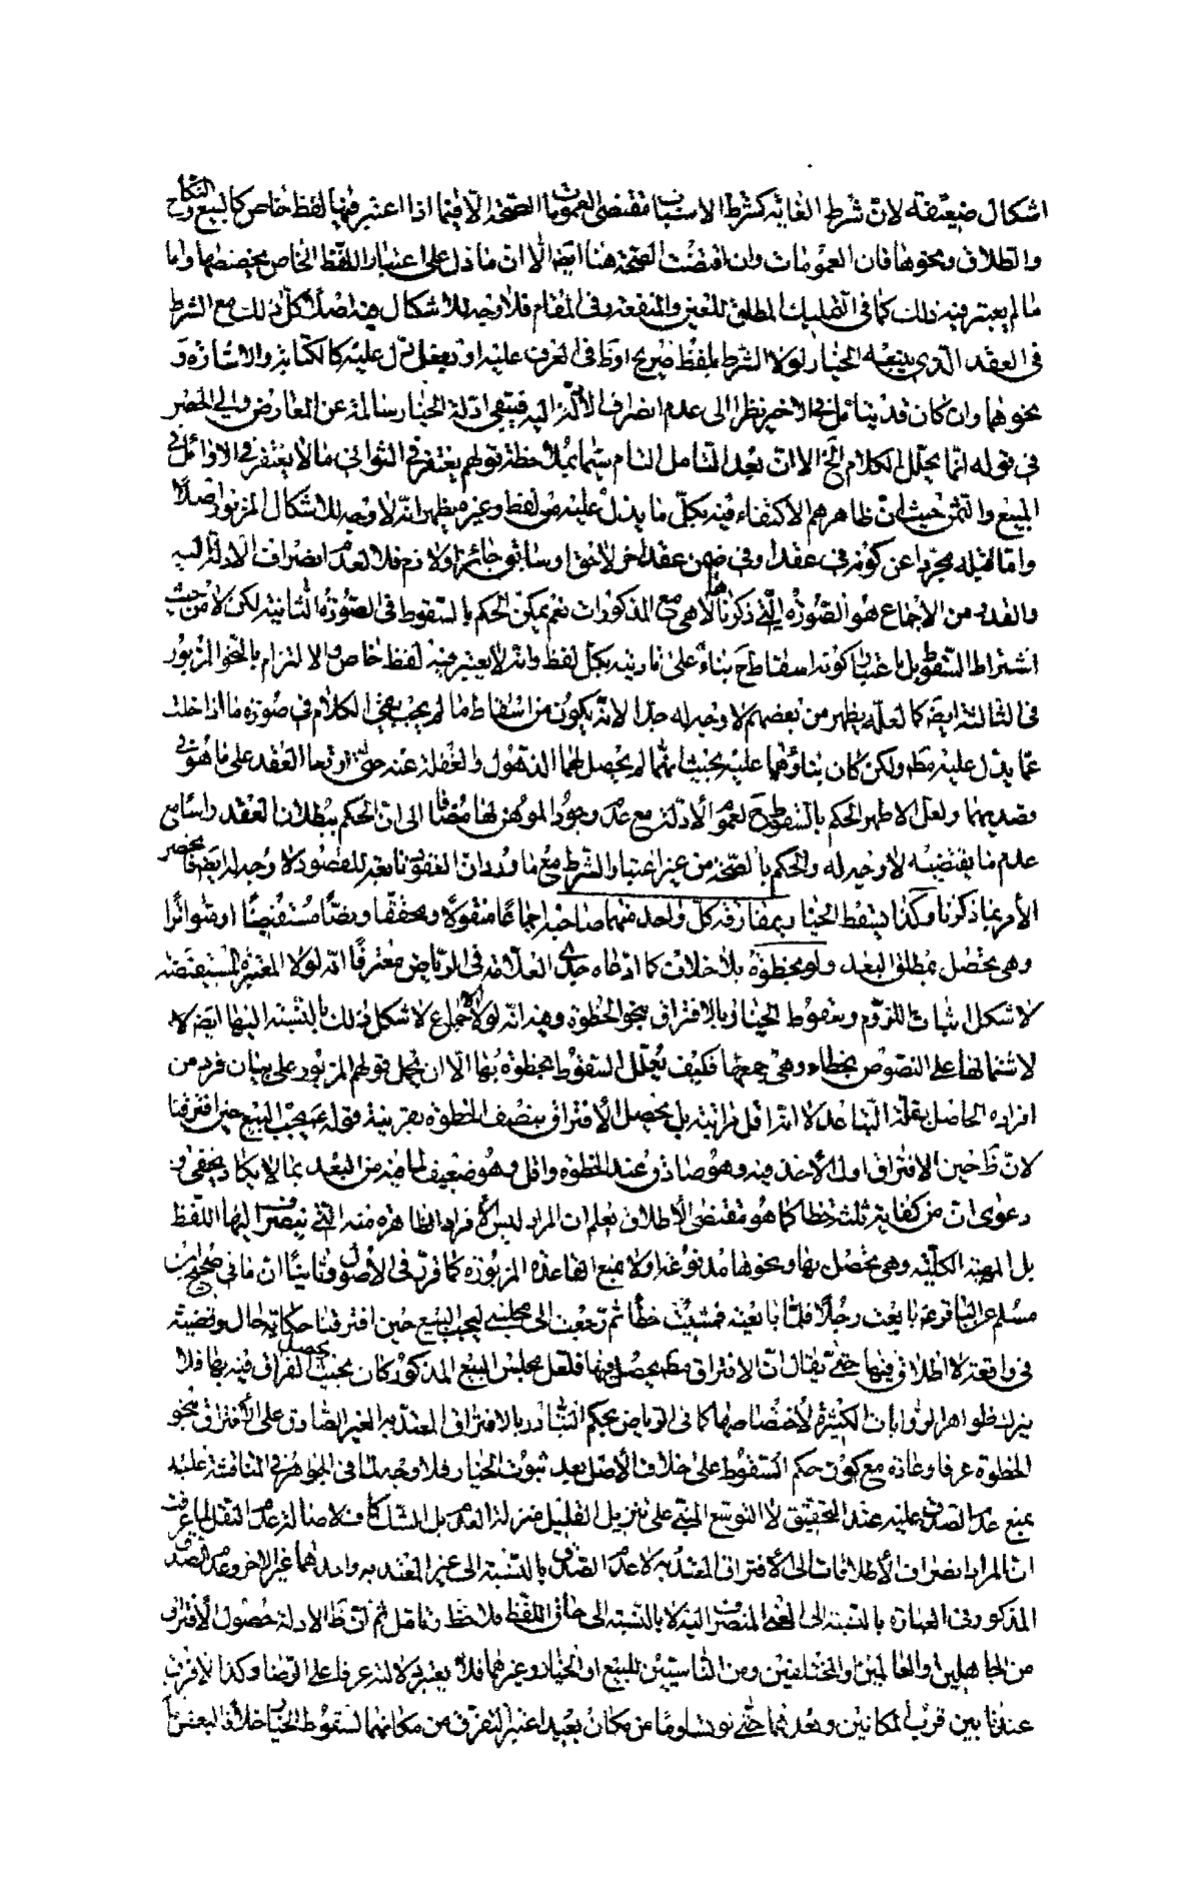 اشكال ضعيفة لان شرط الغاية كشرط الاسباب مقتضى العمومات الصحة الا فيما اذا اعتبر فيها لفظ خاص كالبيع والنكاح
والطلاق ونحوها فان العمومات وان اقتضت الصحة هنا ايضا الا ان ما دل على اعتبار اللفظ الخاص يخصصها واما
ما لم يعتبر فيه ذلك كما في التمليك المطلق للعين والمنفعة وفي المقام فلا وجه للاشكال فيه اصلا كل ذلك مع الشرط
في العقد الذي يتبعه الخيار لولا الشرط بلفظ صريح او ظ في العرف عليه او بفعل دل عليه كالكتابة والاشارة و
نحوهما وان كان قد يتامل في الاخير نظرا الى عدم انصراف الادلة اليه فيبقى ادلة الخيار سالمة عن المعارض والى الحصر
في قوله انما يحلل الكلام الخ الا ان بعد التامل التام سيما بملاحظة قولهم يغتفر في الثواني ما لا يغتفر في الاوائل في
المبيع والثمن حيث ان ظاهرهم الاكتفاء فيه بكل ما يدل عليه من لفظ وغيره يظهر انه لا وجه للاشكال المزبور اصلا
واما قبله مجردا عن كونه في عقد او في ضمن عقد اخر لاحق او سابق جائز او لازم فلا لعدم انصراف الادلة اليه
والقدر من الاجماع هو الصورة التي ذكرناها لا هي مع المذكورات نعم يمكن الحكم بالسقوط في الصورة الثانية لكن لا من حيث
اشتراط السقوط بل باعتبار كونه اسقاطا ح بناء على تاديته بكل لفظ وانه لا يعتبر فيه لفظ خاص والالتزام بالنحو المزبور
في الثالثة ايضا كما لعله يظهر من بعضهم لا وجه له جدا لانه يكون من اسقاط ما لم يجب بقي الكلام في صورة ما اذا خلت
عما يدل عليه مط ولكن كان بناؤهما عليه بحيث انهما لم يحصل لهما الذهول والغفلة عنه حتى اوقعا العقد على ما هو في
قصديهما ولعل الاظهر الحكم بالسقوط ح لعموم الادلة مع عدم وجود الموهن لها مضافا الى ان الحكم ببطلان العقد راسا مع
عدم ما يقتضيه لا وجه له والحكم بالصحة من غير اعتبار الشرط مع ما ورد ان العقود تابعة للقصود لا وجه له ايضا فانحصر
الامر بما ذكرنا وكذا يسقط الخيار بمفارقة كل واحد منهما صاحبه اجماعا منقولا ومحققا ونصا مستفيضا او متواترا
وهي تحصل بمطلق البعد ولو بخطوة بلا خلاف كما ادعاه جدي العلامة في الرياض معترفا انه لولا المعتبرة المستفيضة
لاشكل اثبات اللزوم وسقوط الخيار بالافتراق بنحو الخطوة وفيه انه لولا الاجماع لاشكل ذلك بالنسبة اليها ايضا لا
لاشتمالها على النصوص بخطاء وهي جمعها فكيف يعلل السقوط بخطوة بها الا ان يحمل قولهم المزبور على بيان فرد من
افراده الحاصل بقلة التباعد لا انه اقل مراتبه بل يحصل الافتراق بنصف الخطوة بقرينة قوله ع يجب البيع حين افترقنا
لان ظ حين الافتراق اول الاخذ فيه وهو صادق عند الخطوة واقل وهو ضعيف لما فيه من البعد بما لا يكاد يخفى و
دعوى ان من كفاية ثلث خطا كما هو مقتضى الاطلاق نعلم ان المراد ليس الافراد الظاهرة منه التي ينصرف اليها اللفظ
بل المهية الكلية وهي تحصل بها ونحوها مدفوعة اولا بمنع القاعدة المزبورة كما قرر في الاصول وثانيا ان ما في صحيح ابن
مسلم عن الباقر ع بايعت رجلا فلما بايعته فمشيت خطا ثم رجعت الى مجلسي ليجب البيع حين افترقنا حكاية حال وقضية
في واقعة لا اطلاق فيها حتى يقال ان الافتراق مط يحصل بها فلعل مجلس البيع المذكور كان بحيث يحصل الفراق فيه بها فلا
يترك ظواهر الروايات الكثيرة لاختصاصها كما في الرياض بحكم التبادر بالافتراق المعتد به الغير الصادق على الافتراق بنحو
الخطوة عرفا وعادة مع كون حكم السقوط على خلاف الاصل بعد ثبوت الخيار فلا وجه لما في الجواهر في المناقشة عليه
بمنع عدم الصدق عليه عند التحقيق لا التوسع المبني على تنزيل القليل منزلة العدم بل الشك كاف لاصالة عدم النقل لما عرفت
ان المراد انصراف الاطلاقات الى الافتراق المعتد به لا عدم الصدق بالنسبة الى غير المعتد به واحدهما غير الاخر وعدم الصدق
المذكور في العبارة بالنسبة الى المعنى المنصرف اليه لا بالنسبة الى حاق اللفظ فلاحظ وتامل ثم ان ظ الادلة حصول الافتراق
من الجاهلين والعالمين والمختلفين ومن الناسيين للبيع او الخيار وغيرهما فلا يعتبر دلالته عرفا على الرضا وكذا لا فرق
عندنا بين قرب المكانين وبعدهما حتى لو تساوما من مكان بعيد اعتبر التفرق من مكانهما لسقوط الخيار خلافا لبعض